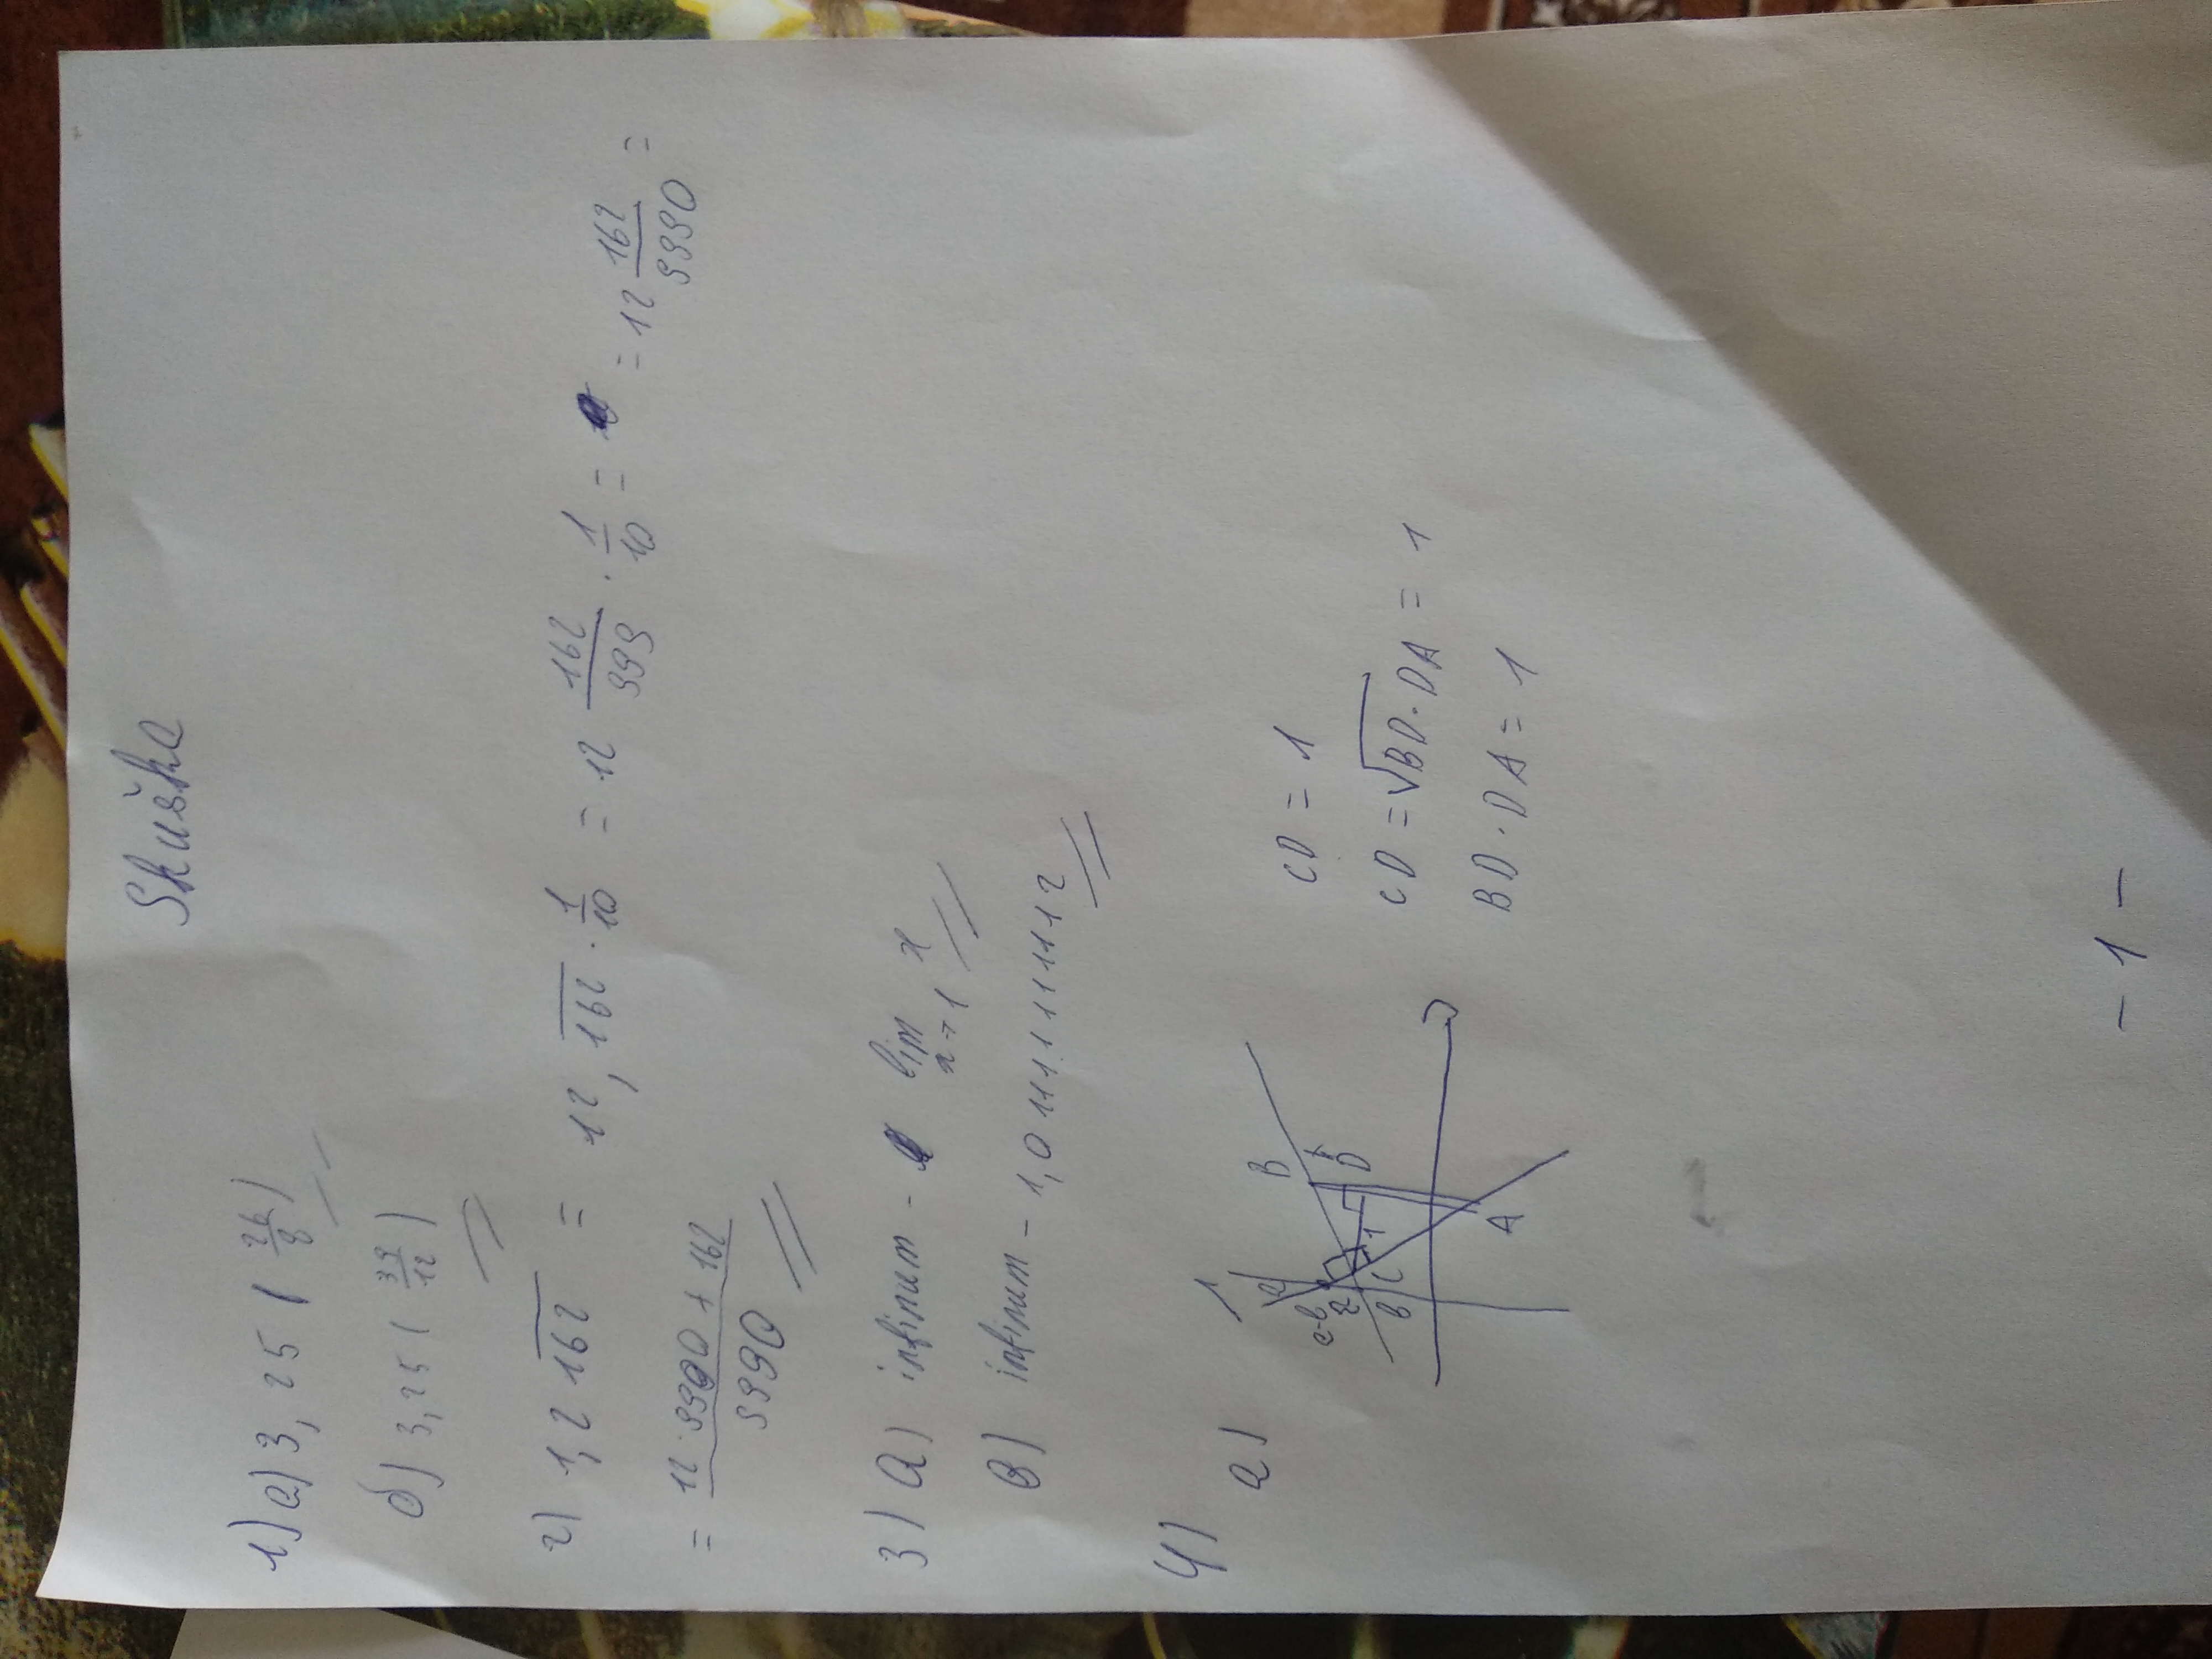 Skuška
1) a) 3,25 ( 26/8 )
b) 3,25 ( 39/12 )
2) 1,2162 = 12,162 · 1/10 = 12 162/999 · 1/10 = = 12 162/9990 =
= 12·9990+162 / 9990
3) a) infinum - lim x
x→1
b) infinum - 1,0111111112
4) a)
1
B
A
C
D
1
CD = 1
CD = √BD·DA = 1
BD·DA = 1
- 1 -